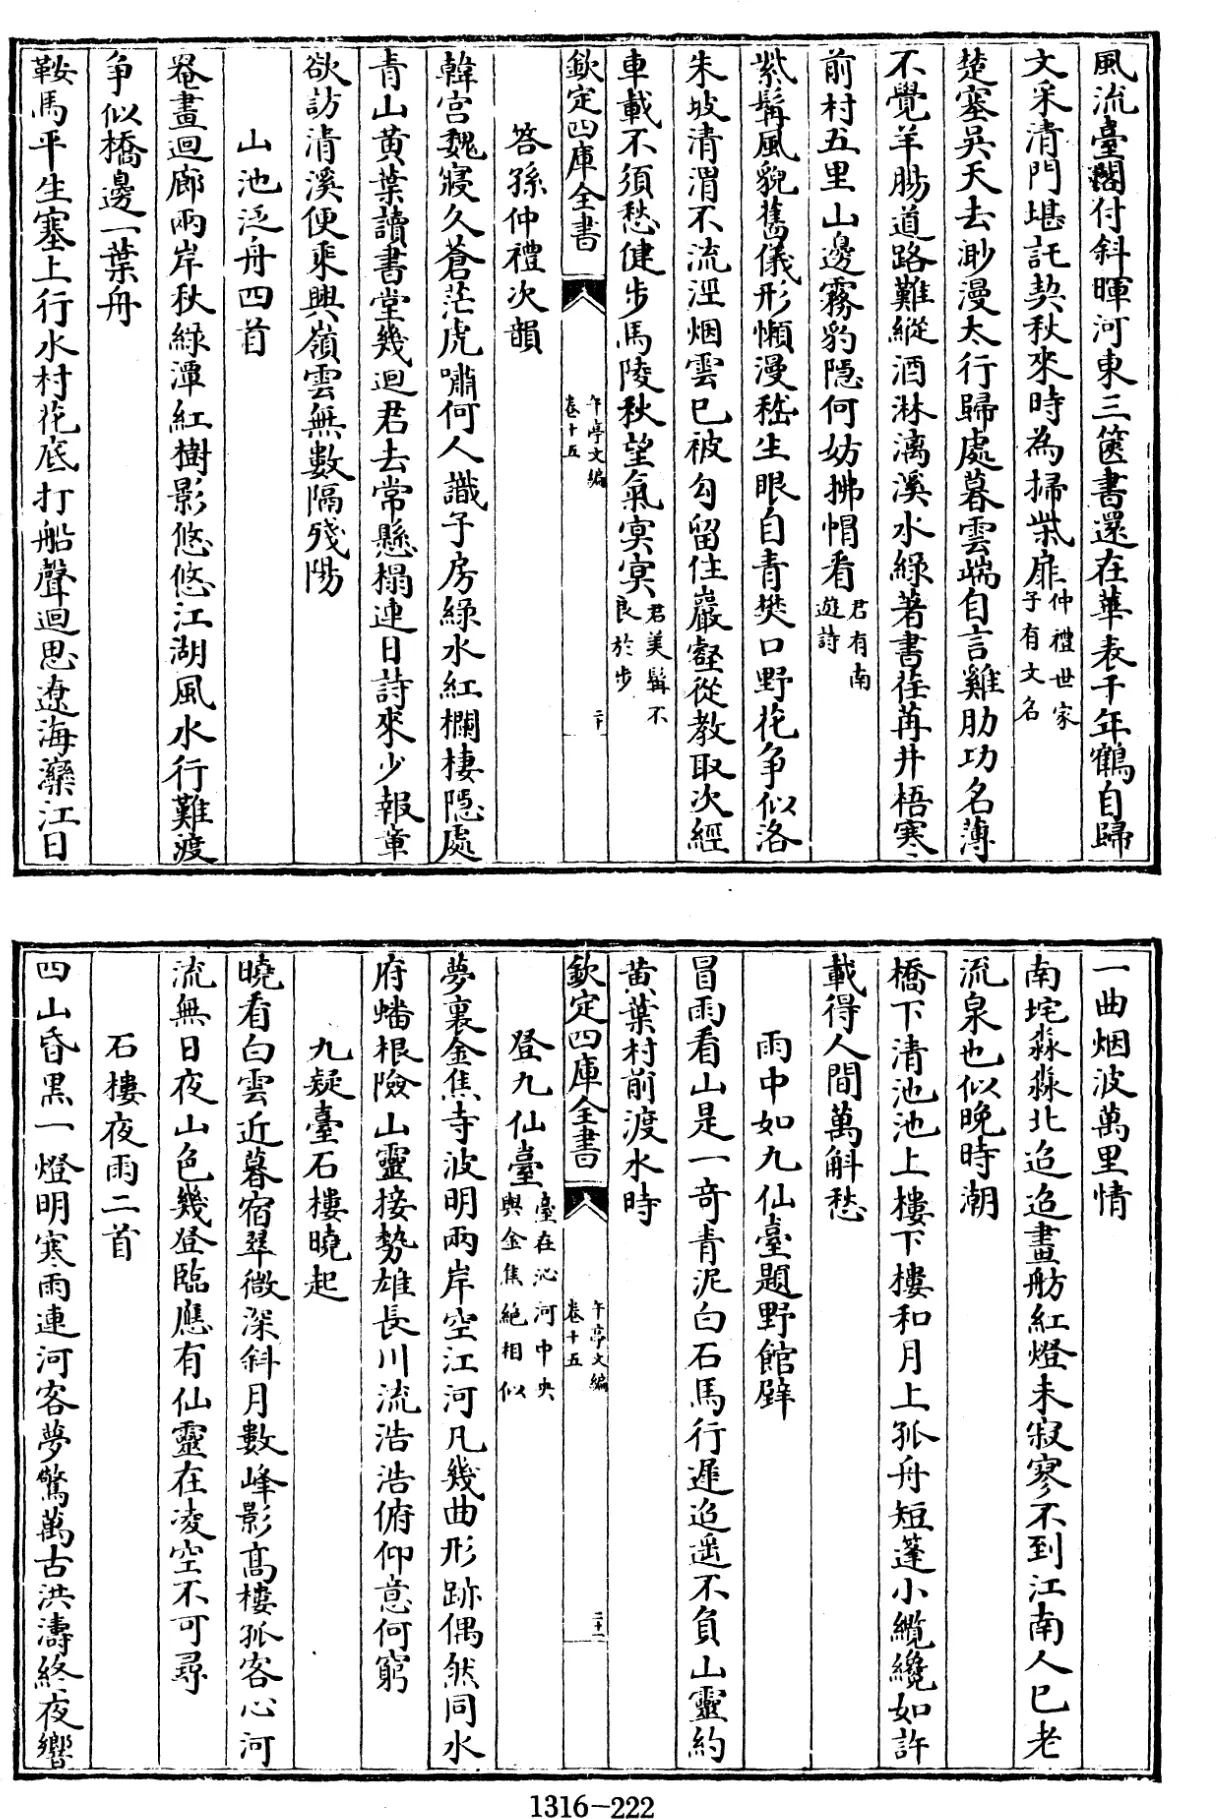 風流臺閣付斜暉河東三篋書還在華表千年鶴自歸
文采清門堪託契秋來時為掃柴扉仲禮世家子有文名
楚塞吳天去渺漫太行歸處暮雲端自言雞肋功名薄
不覺羊腸道路難縱酒淋漓溪水綠著書荏苒井梧寒
前村五里山邊霧豹隱何妨拂帽看君有南遊詩
紫髯風貌舊儀形懶漫嵇生眼自青樊口野花争似洛
朱坡清渭不流涇烟雲已被勾留住巖壑從教取次經
車載不須愁健步馬陵秋望氣冥冥君美髯不良於步
欽定四庫全書
午亭文編
卷十五
二十
答孫仲禮次韻
韓宮魏寢久蒼茫虎嘯何人識子房綠水紅欄棲隱處
青山黄葉讀書堂幾迴君去常懸榻連日詩來少報章
欲訪清溪便乘興嶺雲無數隔殘陽
山池泛舟四首
罨畫迴廊兩岸秋綠潭紅樹影悠悠江湖風水行難渡
争似橋邊一葉舟
鞍馬平生塞上行水村花底打船聲迴思遼海灤江日
一曲烟波萬里情
南垞淼淼北迢迢畫舫紅燈未寂寥不到江南人已老
流泉也似晚時潮
橋下清池池上樓下樓和月上孤舟短蓬小纜纔如許
載得人間萬斛愁
雨中如九仙臺題野館壁
冒雨看山是一奇青泥白石馬行遲迢遥不負山靈約
黄葉村前渡水時
欽定四庫全書
午亭文編
卷十五
二十一
登九仙臺臺在沁河中央與金焦絕相似
夢裏金焦寺波明兩岸空江河凡幾曲形跡偶然同水
府蟠根險山靈接勢雄長川流浩浩俯仰意何窮
九疑臺石樓曉起
曉看白雲近暮宿翠微深斜月數峰影高樓孤客心河
流無日夜山色幾登臨應有仙靈在凌空不可尋
石樓夜雨二首
四山昏黑一燈明寒雨連河客夢驚萬古洪濤終夜響
1316—222